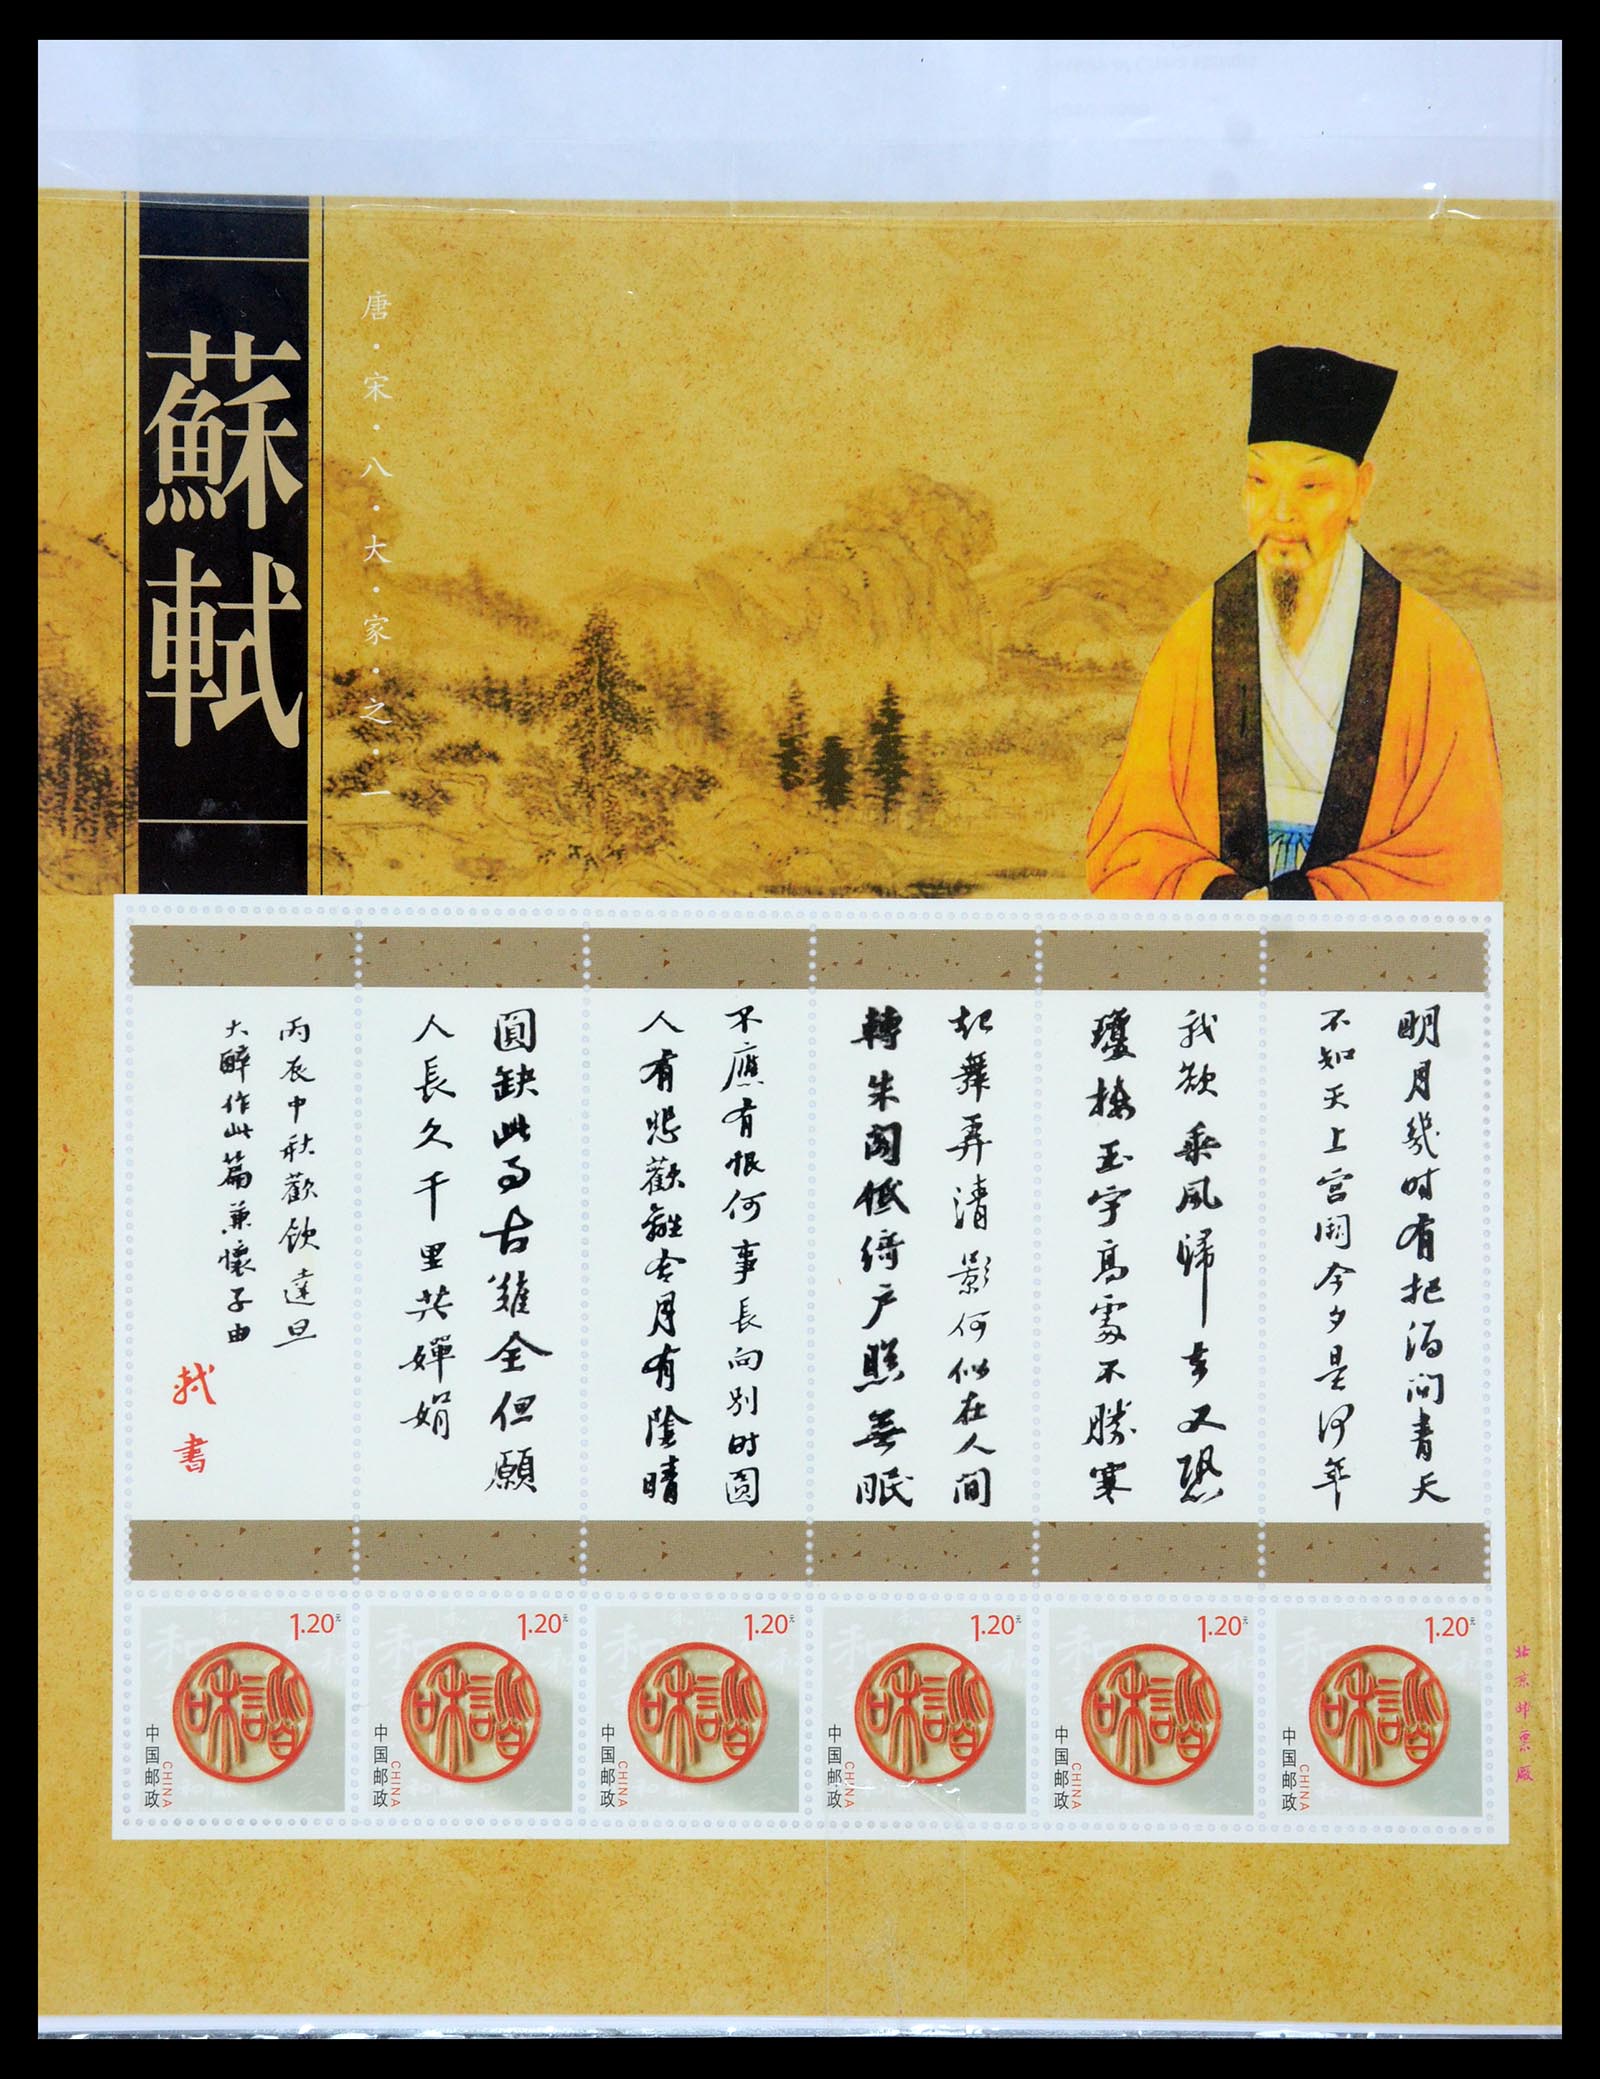 蘇軾
唐·宋·八·大·家·之·一
明月幾时有把酒问青天
不知天上宫阙今夕是何年
我欲乘风归去又恐
瓊楼玉宇高處不勝寒
起舞弄清影何似在人间
轉朱阁低绮户照無眠
不應有恨何事長向别时圆
人有悲歡離合月有陰晴
圓缺此事古難全但願
人長久千里共嬋娟
丙辰中秋歡飲達旦
大醉作此篇兼懷子由
軾書
1.20元
和諧
中国邮政
CHINA
1.20元
和諧
中国邮政
CHINA
1.20元
和諧
中国邮政
CHINA
1.20元
和諧
中国邮政
CHINA
1.20元
和諧
中国邮政
CHINA
1.20元
和諧
中国邮政
CHINA
北京邮票厰